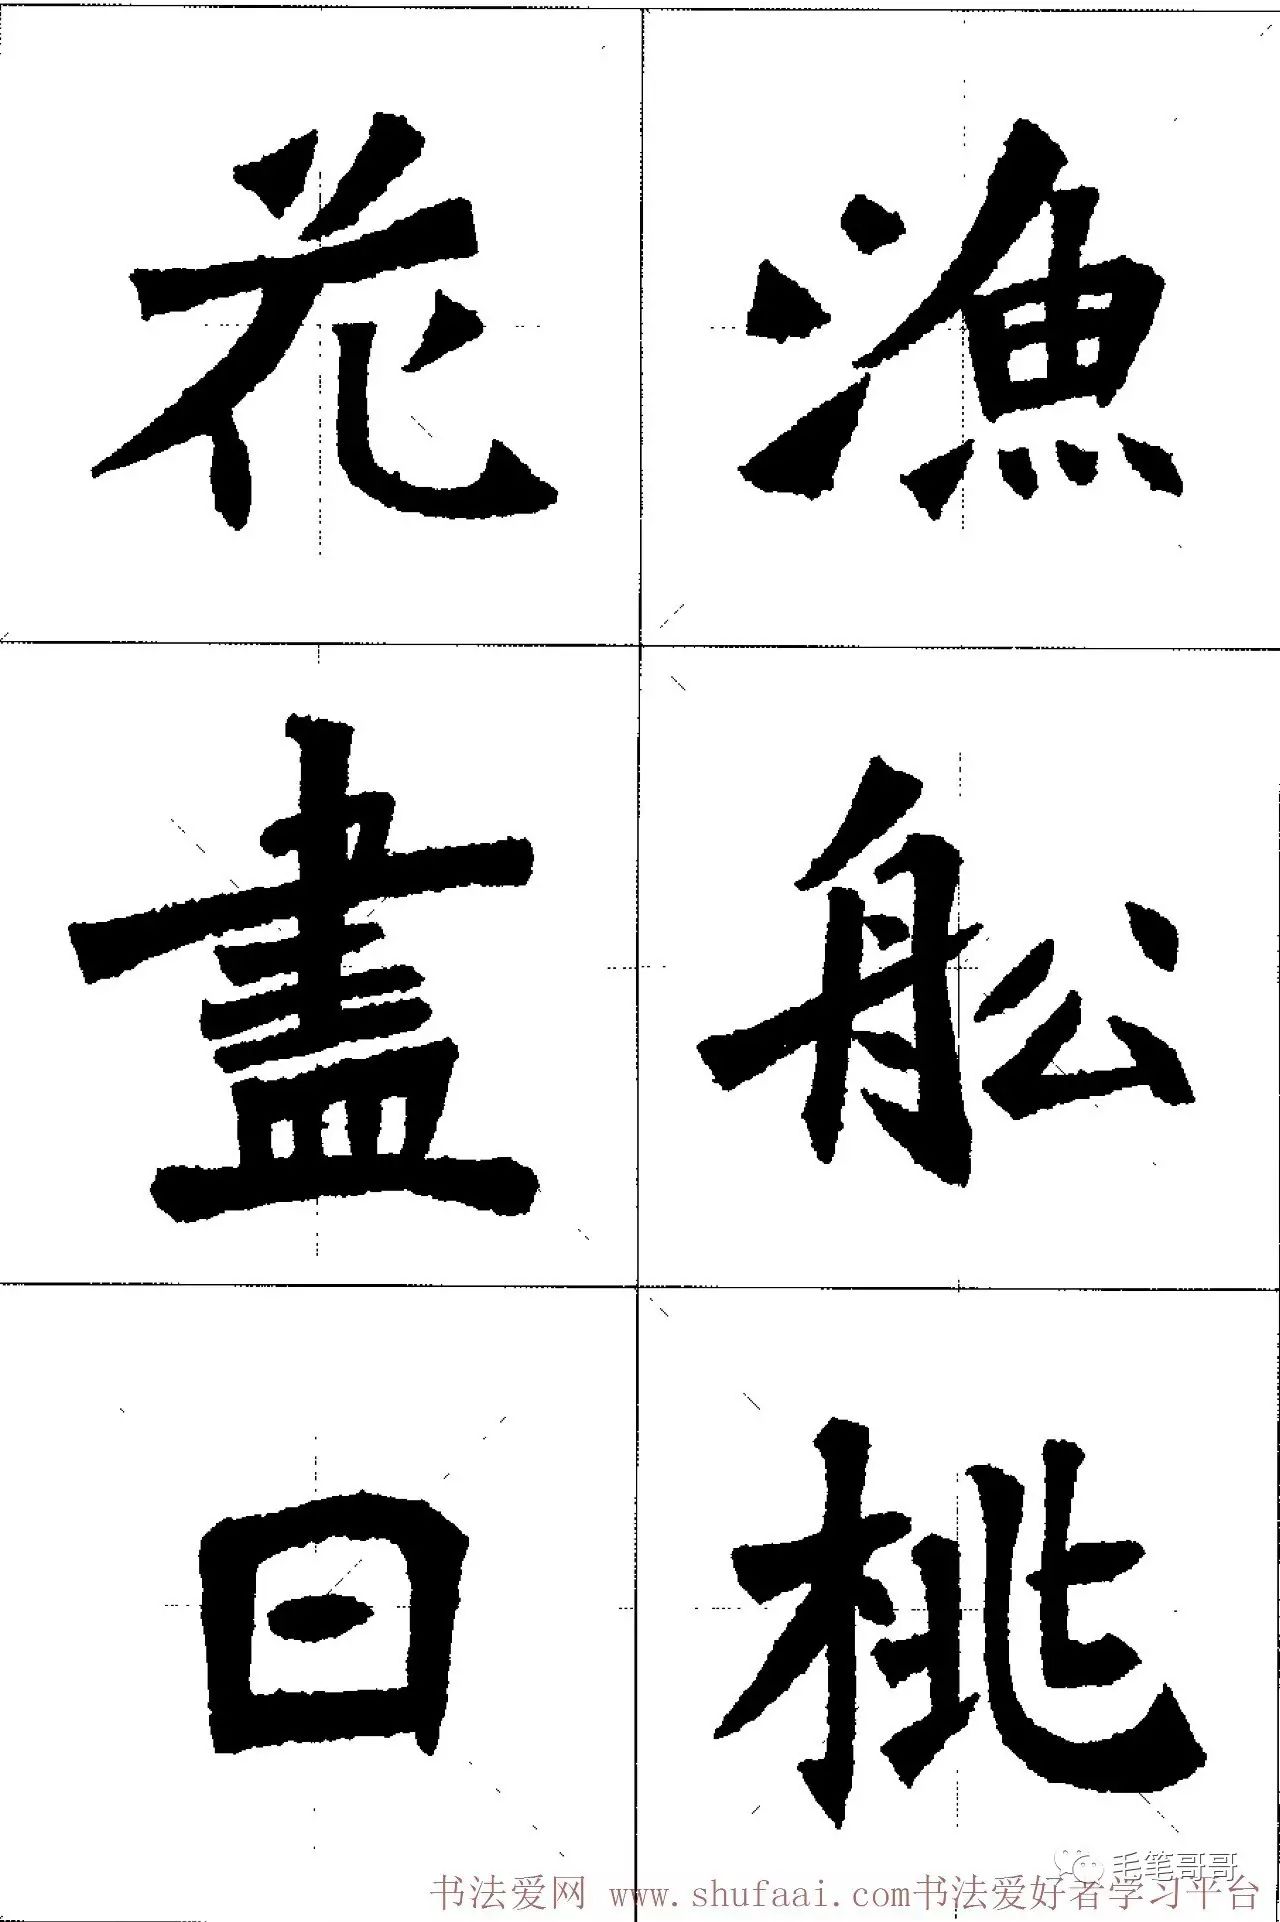 漁舩桃
花盡日
毛笔哥哥
书法爱网 www.shufaai.com书法爱好者学习平台